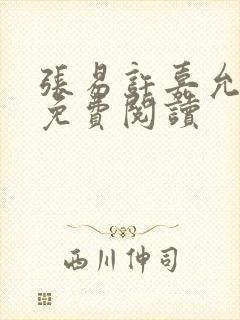 張易許嘉允
免費閱讀
西川伸司